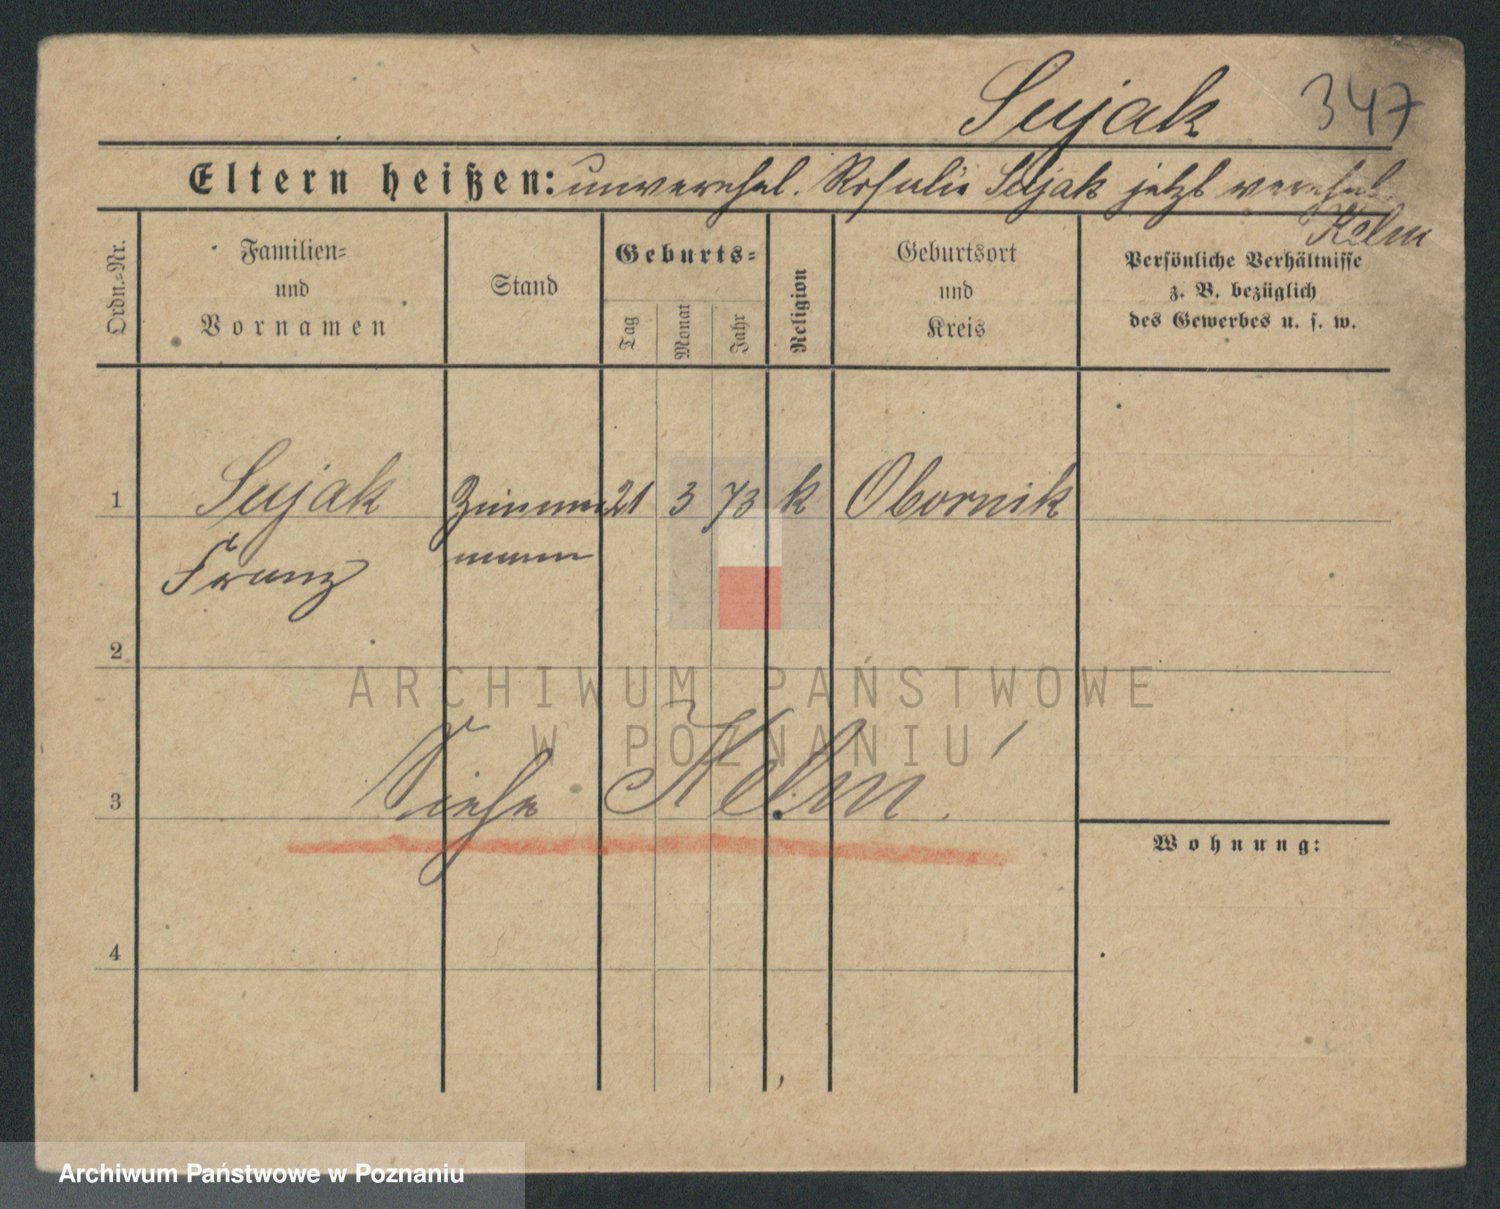 Sujak 347
Eltern heißen: unverehel. Rosalie Sujak jetzt verehel.
Kelm
Ordn.-Nr.
Familien-
und
Vornamen
Stand
Geburts-
Tag
Monat
Jahr
Religion
Geburtsort
und
Kreis
Persönliche Verhältnisse
z. B. bezüglich
des Gewerbes u. s. w.
1 Sujak Zimmer 21 3 73 k Obornik
Franz mann
2
ARCHIWUM PAŃSTWOWE
W POZNANIU
Siehe Kelm.
3
Wohnung:
4
Archiwum Państwowe w Poznaniu